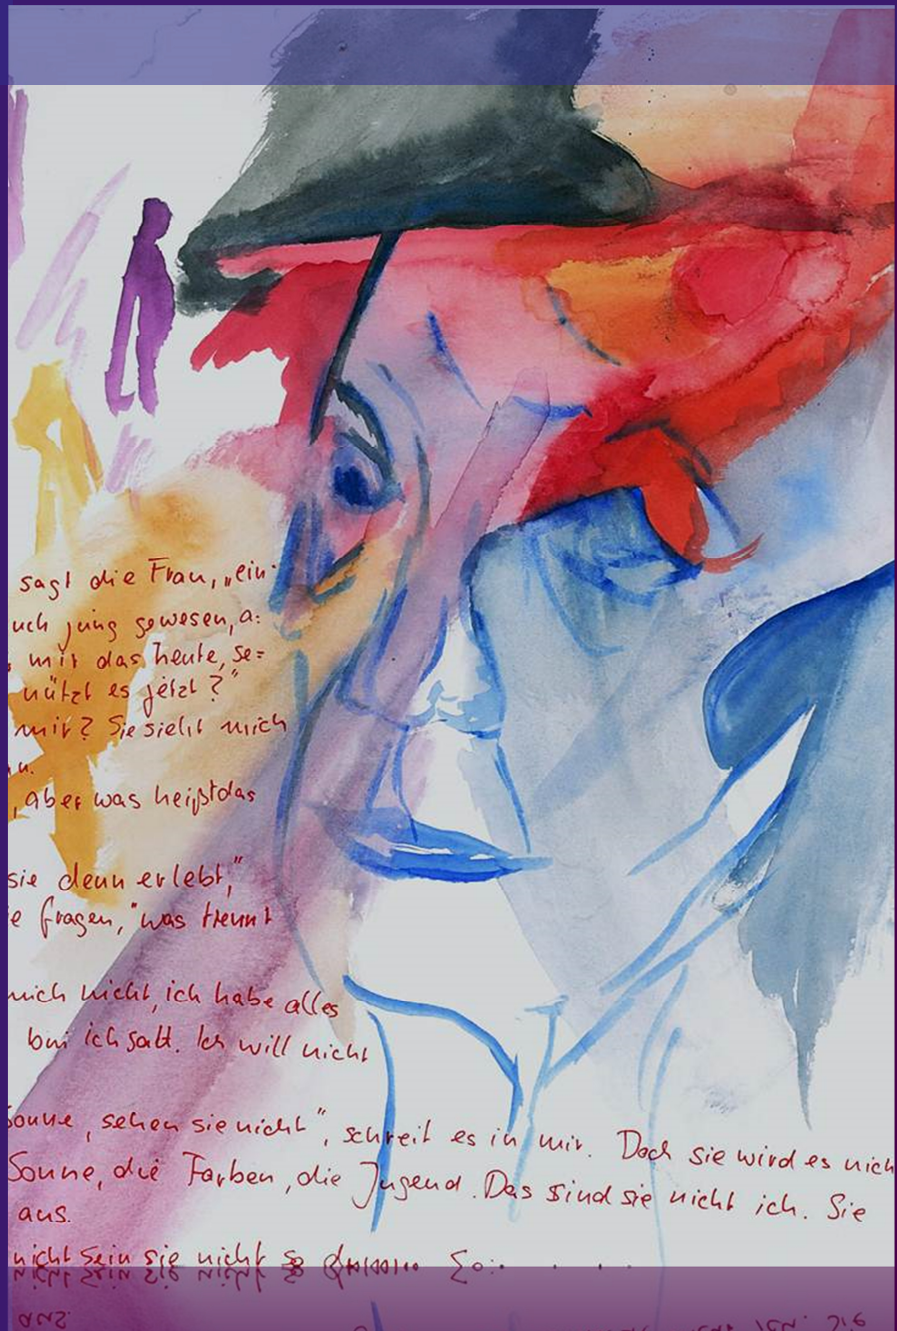 sagt die Frau, „ein-
uch jung gewesen, a=
mit das heute, se=
nützt es jetzt?"
mir? Sie sieht mich
n.
, aber was heißt das
sie denn erlebt,"
e fragen, "was trennt
mich nicht, ich habe alles
bin ich satt. Ich will nicht
Sonne, sehen sie nicht", schreit es in mir. Doch sie wird es nich
Sonne, die Farben, die Jugend. Das sind sie nicht ich. Sie
aus.
nicht sein sie nicht so